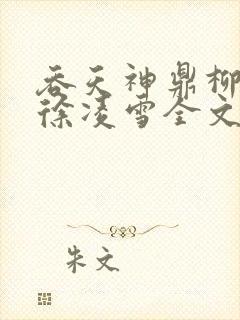 吞天神鼎柳
徐凌雪全文
朱文